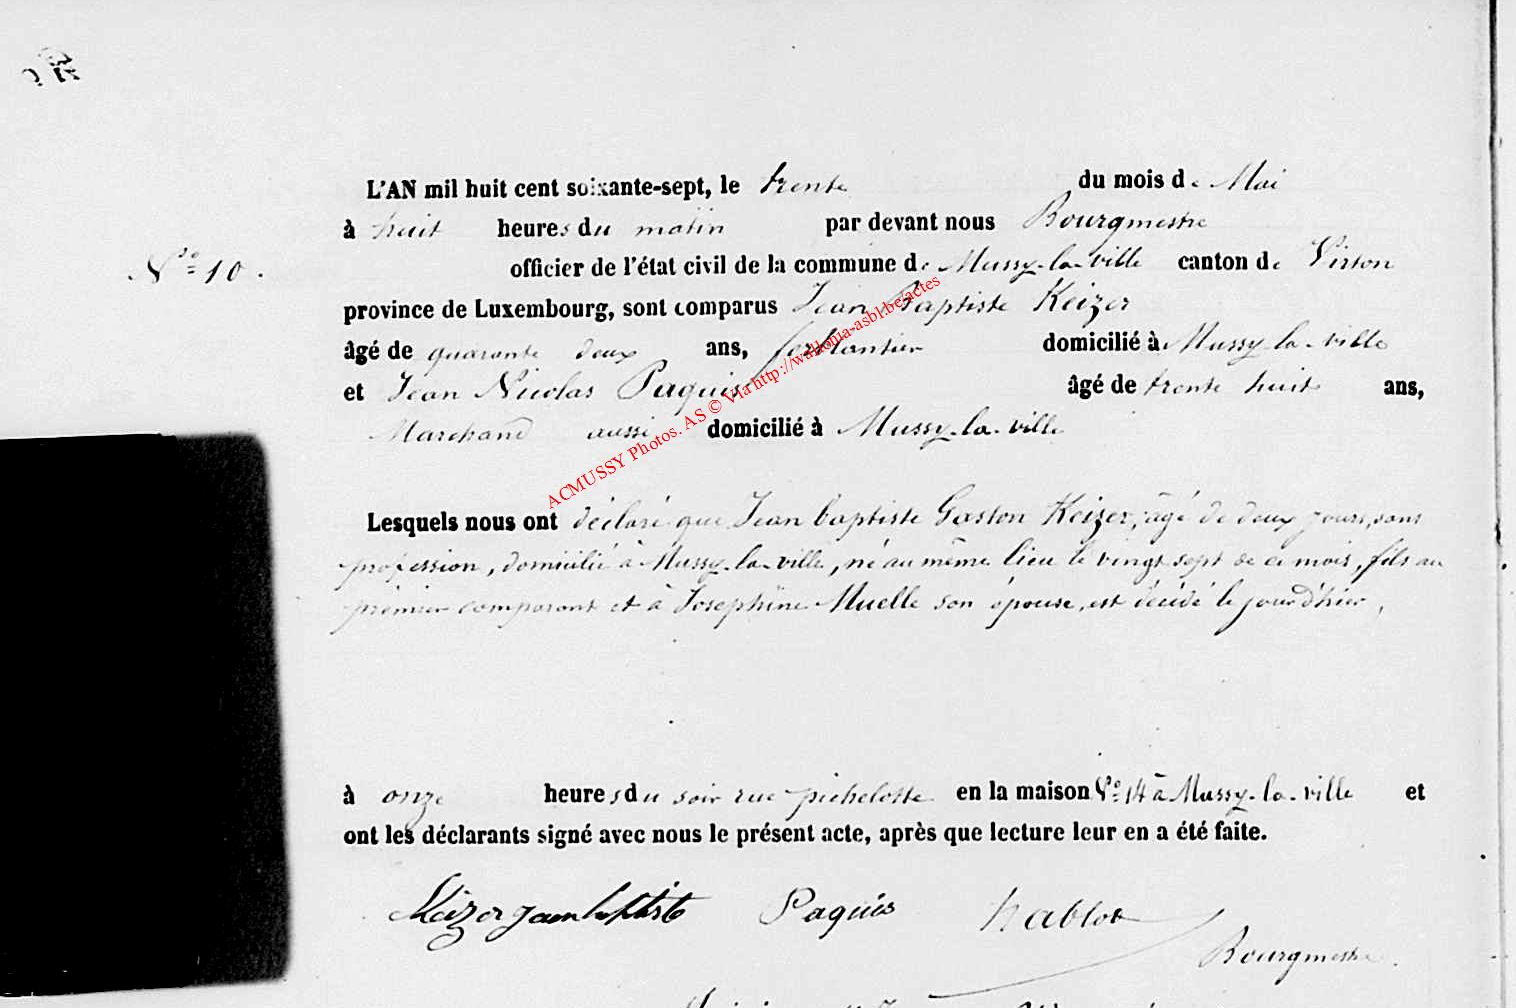 L'AN mil huit cent soixante-sept, le trente du mois de Mai
à huit heures du matin par devant nous Bourgmestre
N° 10. officier de l'état civil de la commune de Mussy-la-ville canton de Virton
province de Luxembourg, sont comparus Jean Baptiste Keizer
âgé de quarante deux ans, ferblantier domicilié à Mussy-la-ville
et Jean Nicolas Paquis âgé de trente huit ans,
Marchand aussi domicilié à Mussy-la-ville
ACMUSSY Photos. AS © Via http://wallonia-asbl.be/actes
Lesquels nous ont déclaré que Jean baptiste Gaston Keizer, âgé de deux jours, sans
profession, domicilié à Mussy-la-ville, né au même lieu le vingt sept de ce mois, fils au
premier comparant et à Josephine Muelle son épouse, est décédé le jour d'hier,
à onze heures du soir rue pichelotte en la maison N° 14 à Mussy-la-ville et
ont les déclarants signé avec nous le présent acte, après que lecture leur en a été faite.
Keizer jean baptiste Paquis hablot
Bourgmestre.